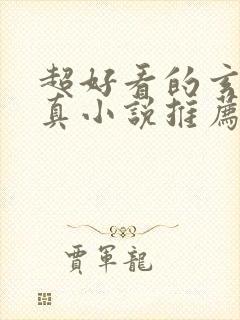 超好看的玄
真小說推薦
賈軍龍